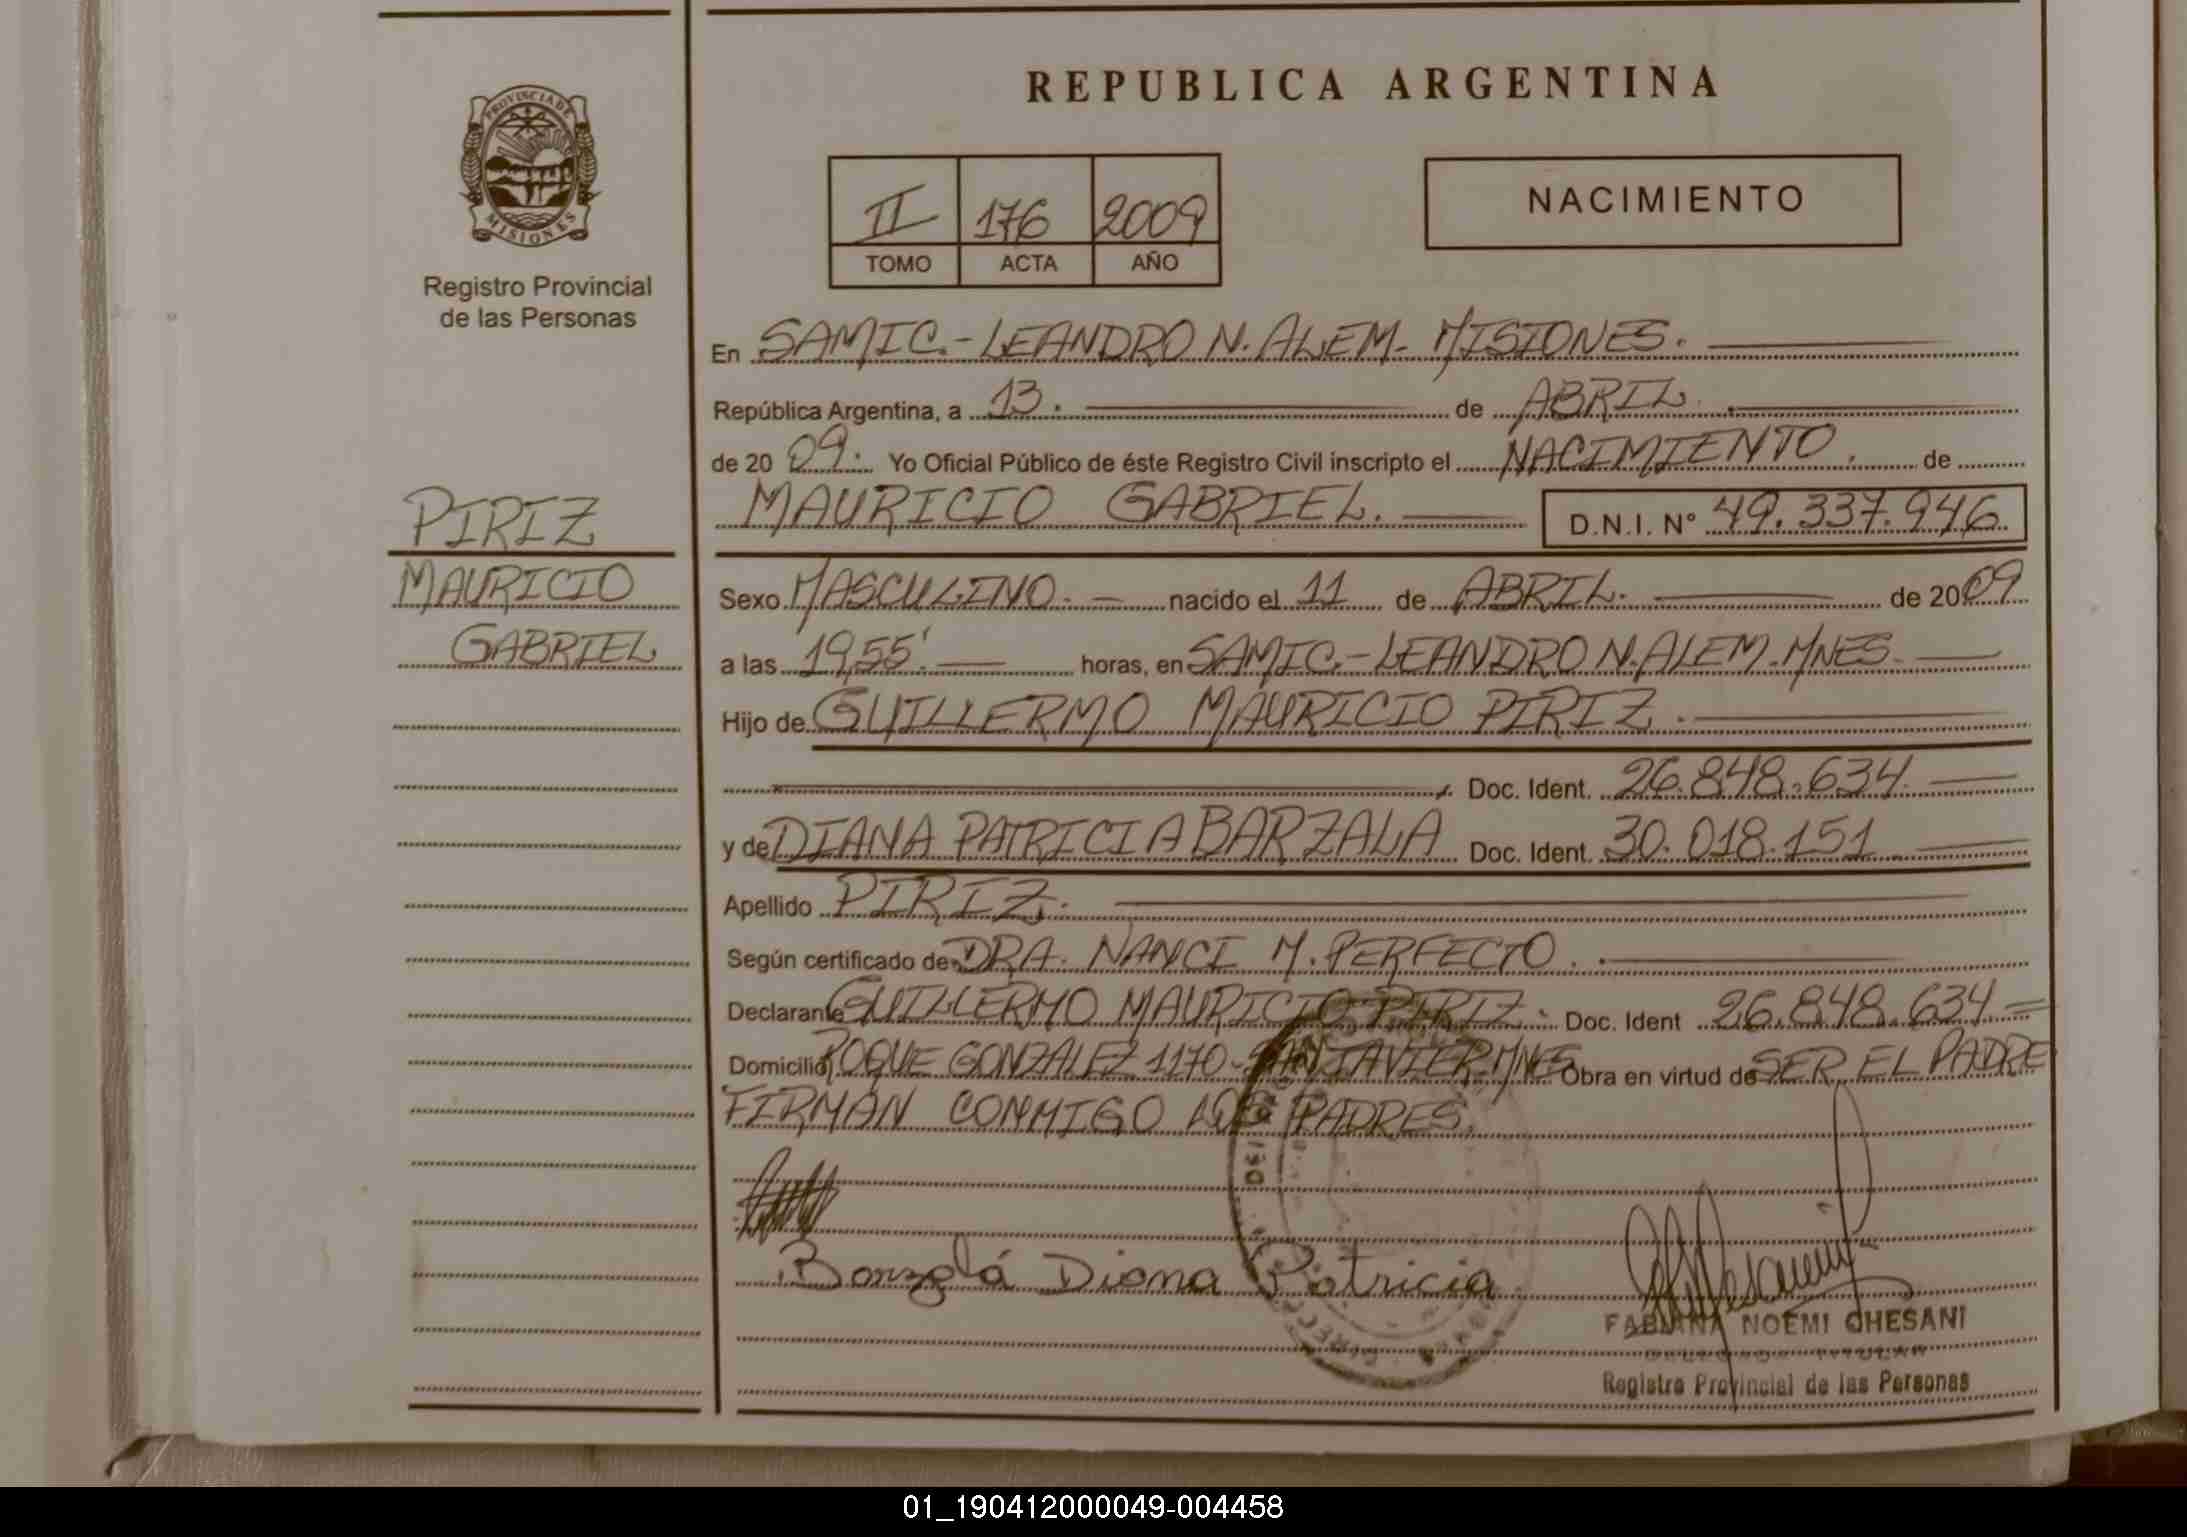 REPUBLICA ARGENTINA
PROVINCIA DE
MISIONES
Registro Provincial
de las Personas
II 176 2009
TOMO ACTA AÑO
NACIMIENTO
En SAMIC.-LEANDRO N. ALEM- MISIONES.
República Argentina, a 13. de ABRIL.
de 20 09. Yo Oficial Público de éste Registro Civil inscripto el NACIMIENTO. de
MAURICIO GABRIEL. D.N.I. N° 49.337.946
PIRIZ
MAURICIO
GABRIEL
Sexo MASCULINO. nacido el 11 de ABRIL. de 2009
a las 19,55'. horas, en SAMIC.-LEANDRO N. ALEM.-MNES.
Hijo de GUILLERMO MAURICIO PIRIZ.
Doc. Ident. 26.848.634.
y de DIANA PATRICIA BARZALA Doc. Ident. 30.018.151
Apellido PIRIZ.
Según certificado de DRA. NANCI M. PERFECTO.
Declarante GUILLERMO MAURICIO PIRIZ. Doc. Ident 26.848.634.
Domicilio ROQUE GONZALEZ 1170-SAN JAVIER-MNES Obra en virtud de SER EL PADRE
FIRMAN CONMIGO LOS PADRES.
Barzalá Diana Patricia
FABIANA NOEMI CHESANI
Registro Provincial de las Personas
01_190412000049-004458